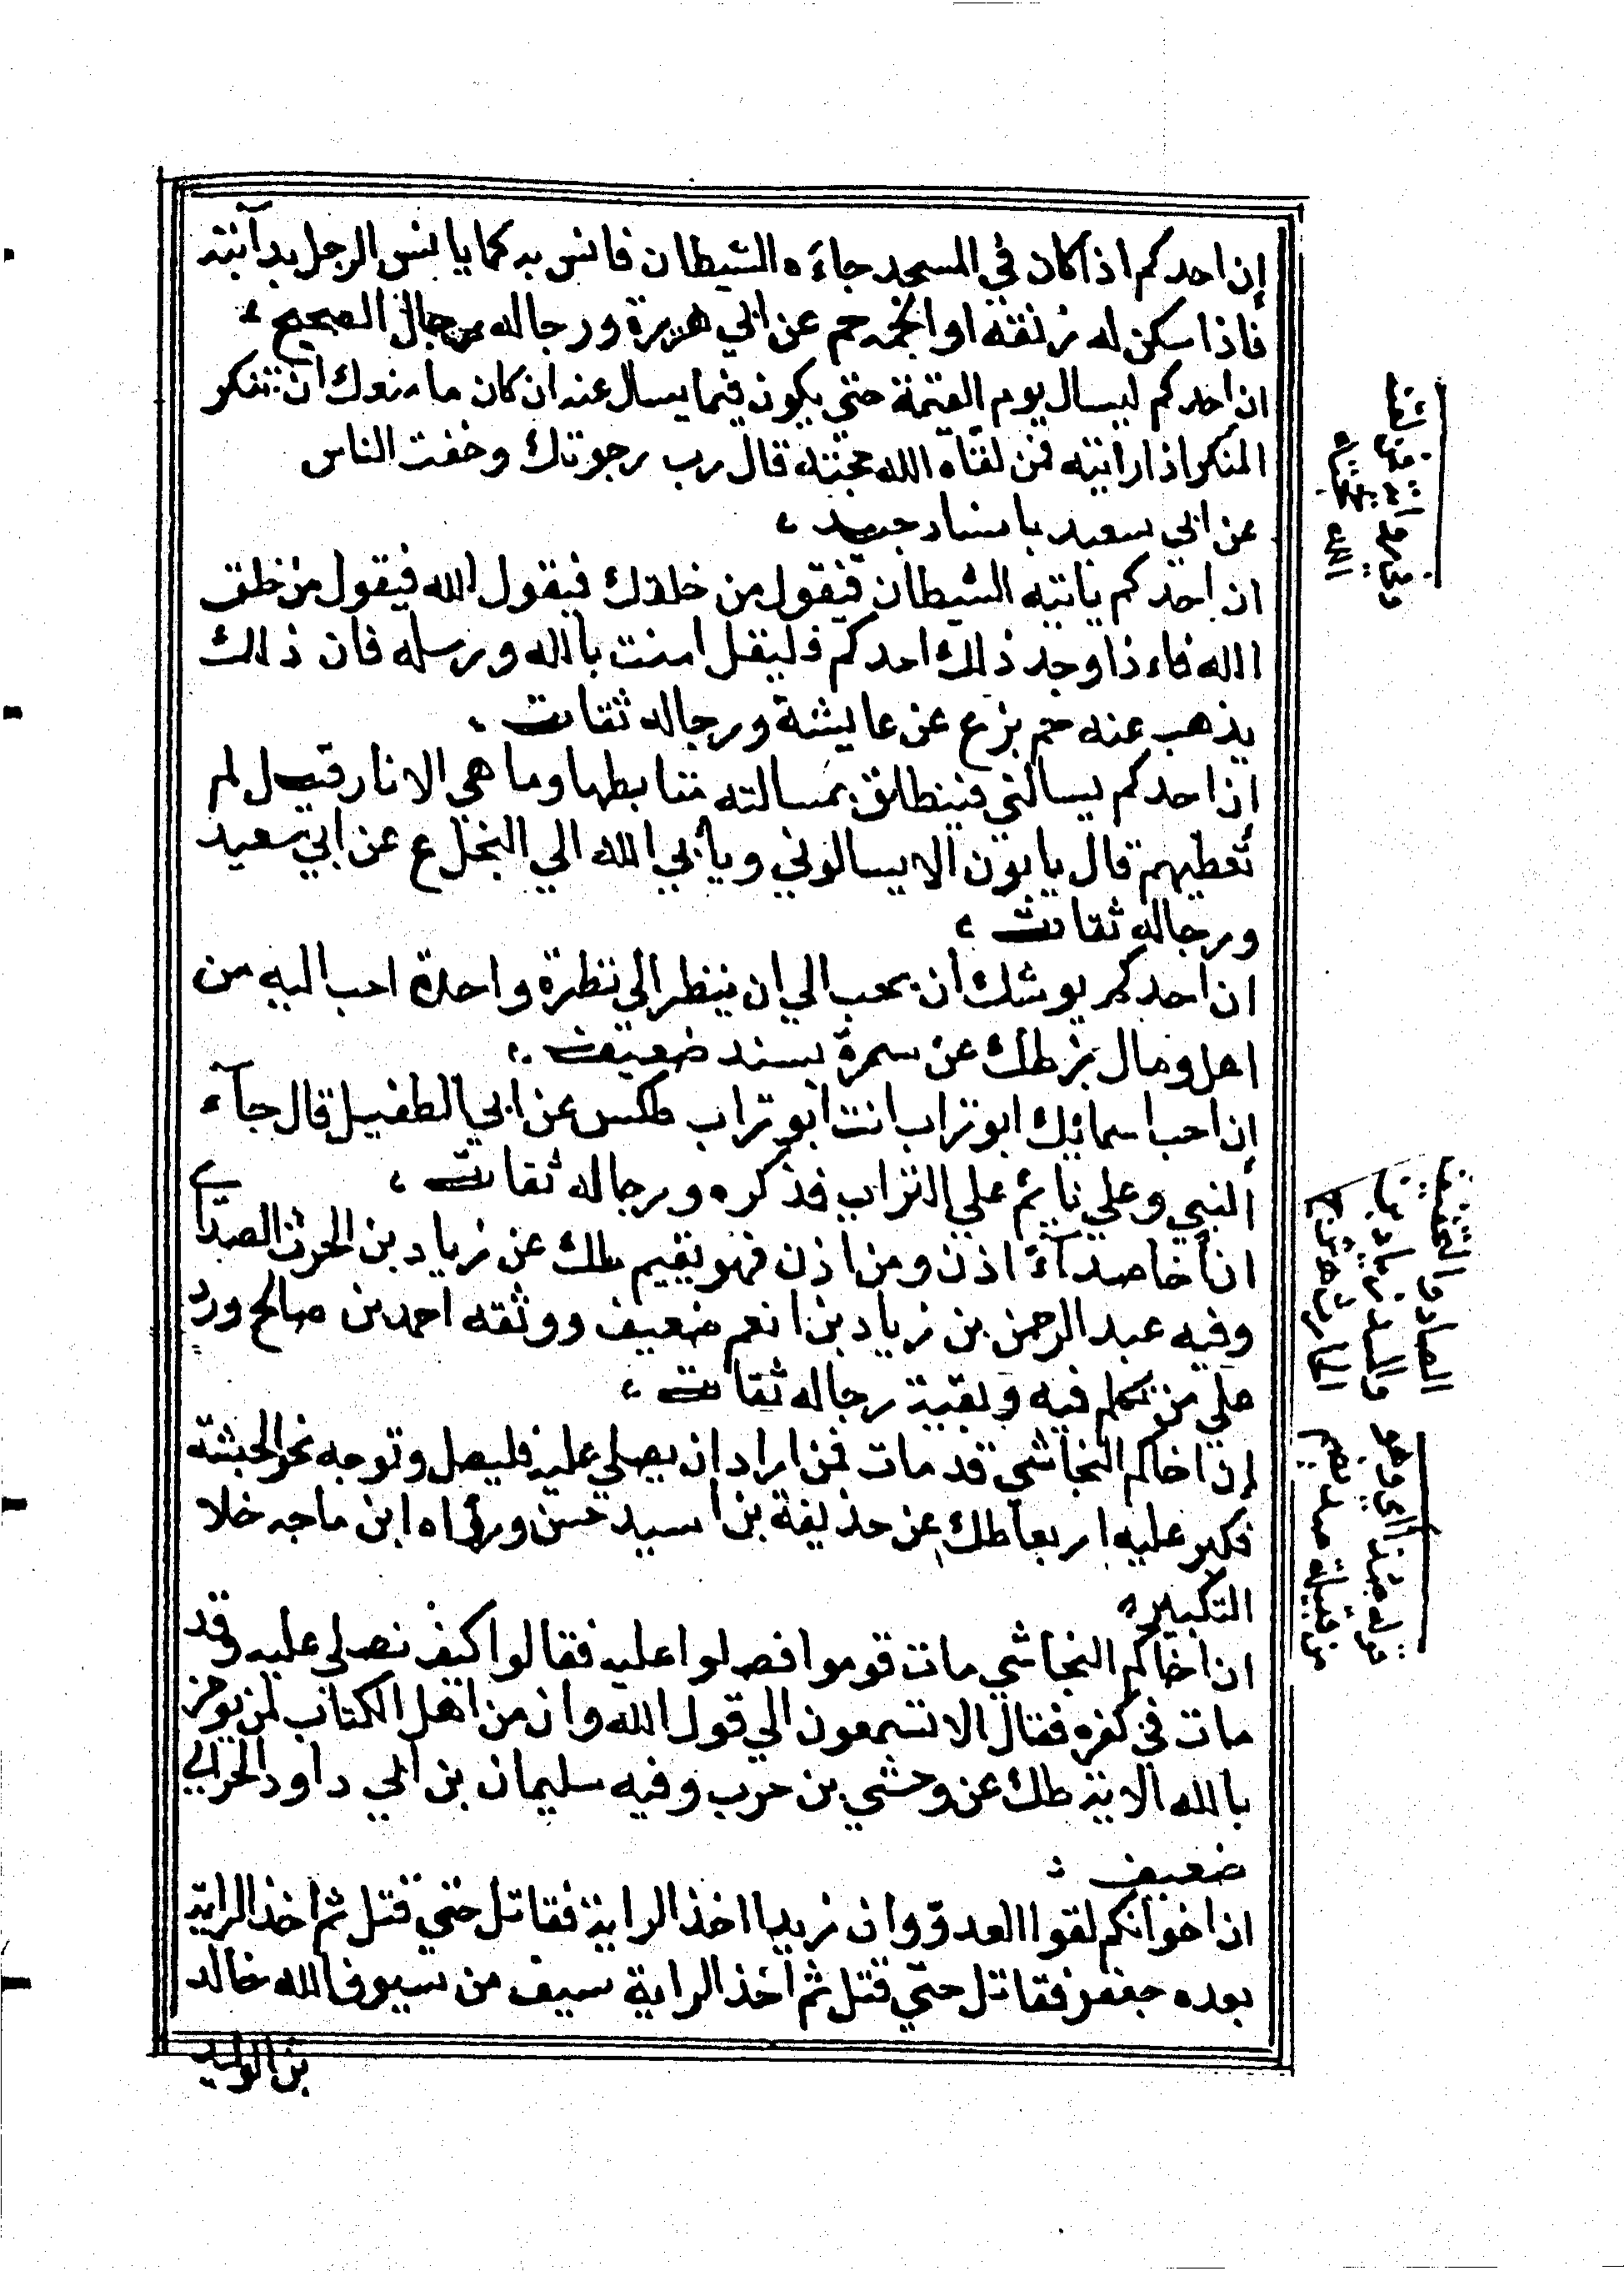 إن احدكم اذا كان في المسجد جاءه الشيطان فانس به كما يانس الرجل بدآبته
فاذا سكن له زنقه او الجمه حم عن ابي هريرة ورجاله رجال الصحيح ،
ان احدكم ليسال يوم القيمة حتي يكون فيما يسال عنه ان كان ما منعك ان تنكر
المنكر اذا رايته فمن لقاه الله حجته قال رب رجوتك وخفت الناس
عن ابي سعيد باسناد جيد ،
ان احدكم ياتيه الشيطان فيقول من خلقك فيقول الله فيقول من خلق
الله فاءذا وجد ذلك احدكم فليقل امنت بالله ورسله فان ذلك
يذهب عنه حم بز ع عن عايشة ورجاله ثقات ،
إن احدكم يسالني فينطلق بمسالته متابطها وما هي الا نار قيل لم
تعطيهم قال يابون الا يسالوني ويأبي الله الي البخل ع عن ابي سعيد
ورجاله ثقات ،
ان احدكم يوشك ان يحب الي ان ينظر الي نظرة واحدة احب اليه من
اهل ومال بز طك عن سمرة بسند ضعيف ،
إن احب اسمائك ابو تراب انت ابو تراب طكس عن ابي الطفيل قال جآء
النبي وعلي نايم علي التراب فذكره ورجاله ثقات ،
ان أخا صدآء اذن ومن اذن فهو يقيم طك عن زياد بن الحرث الصداي
وفيه عبد الرحمن بن زياد بن انعم ضعيف ووثقه احمد بن صالح ورد
علي من تكلم فيه وبقية رجاله ثقات ،
إن اخاكم النجاشي قد مات فمن اراد ان يصلي عليه فليصل وتوجه نحو الحبشة
فكبر عليه اربعا طك عن حذيفة بن اسيد حسن ورواه ابن ماجه خلا
التكبير ،
ان اخاكم النجاشي مات قوموا فصلوا عليه فقالوا كيف نصلي عليه وقد
مات في كفره فقال الا تسمعون الي قول الله وان من اهل الكتاب لمن يومن
بالله الاية طك عن وحشي بن حرب وفيه سليمان بن ابي داود الحراني
ضعيف :
ان اخوانكم لقوا العدو وان زيدا اخذ الراية فقاتل حتي قتل ثم اخذ الراية
بعده جعفر فقاتل حتي قتل ثم اخذ الراية سيف من سيوف الله خالد
بن الوليد